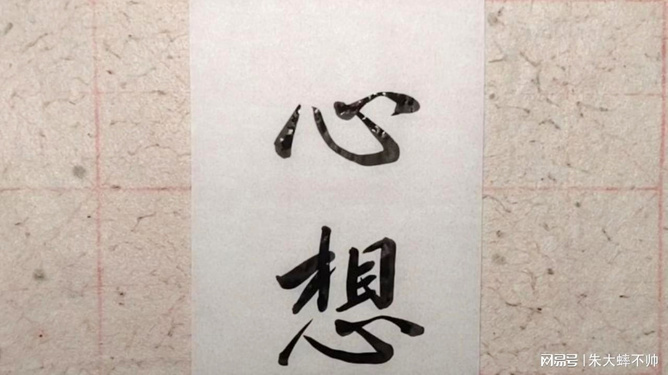 心
想
网易号 | 朱大蟀不帅